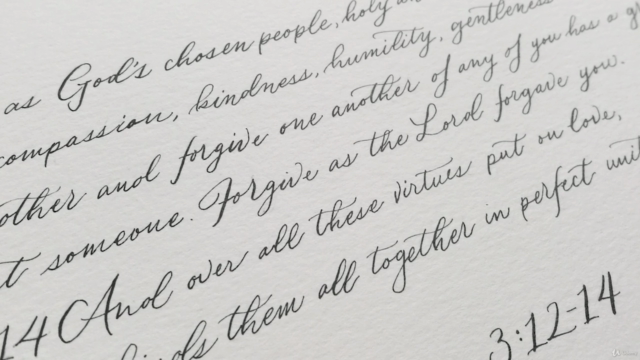 as God's chosen people, holy an
compassion, kindness, humility, gentleness
other and forgive one another of any of you has a gr
t someone. Forgive as the Lord forgave you.
14 And over all these virtues put on love,
binds them all together in perfect unit
3:12-14